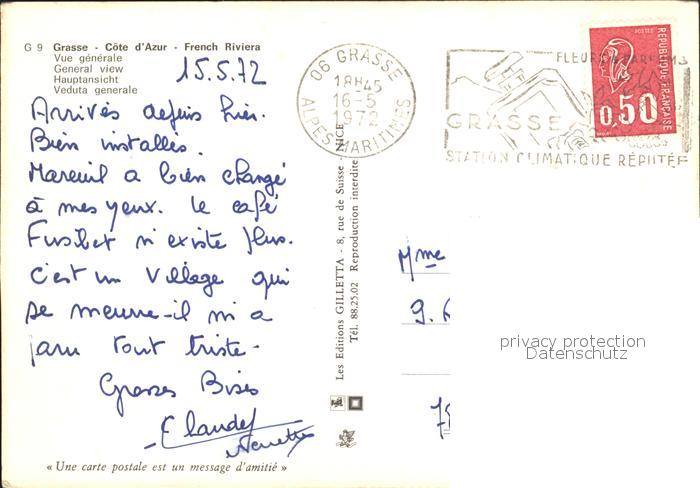 G 9 Grasse - Côte d'Azur - French Riviera
Vue générale
General view
Hauptansicht
Veduta generale
15.5.72
Arrivés depuis hier.
Bien installés.
Mareuil a bien changé
à mes yeux. Le café
Fusibet n'existe plus.
C'est un village qui
se meurre - il m'a
paru tout triste -
Grosses Bises
Claude
« Une carte postale est un message d'amitié »
Les Editions GILLETTA - 8, rue de Suisse - NICE
Tél. 88.25.02 Reproduction interdite
06 GRASSE
18H45
16-5
1972
ALPES MARITIMES
GRASSE
STATION CLIMATIQUE RÉPUTÉE
POSTES
REPUBLIQUE FRANCAISE
0,50
Mme
9.
75
privacy protection
Datenschutz